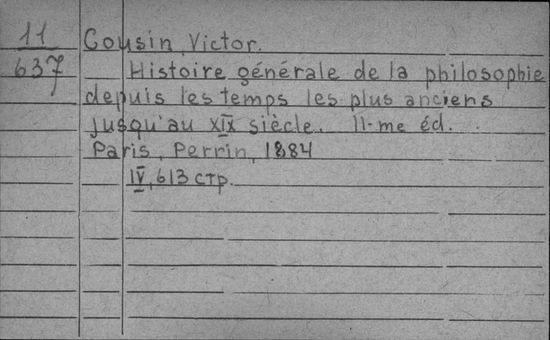 11
637
Cousin, Victor.
Histoire générale de la philosophie
depuis les temps les plus anciens
jusqu'au XIX siècle. 11-me éd.
Paris, Perrin, 1884
IV, 613 стр.